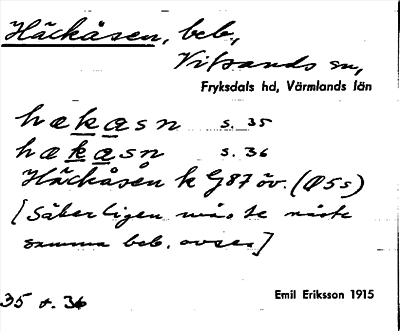 Häckåsen, beb.,
Vitsands sn,
Fryksdals hd, Värmlands län
hækasn s. 35
hækasn s. 36
Häckåsen k G87 öv. (Ø5s)
[Säkerligen må
samma beb. avses]
35 o. 36
Emil Eriksson 1915